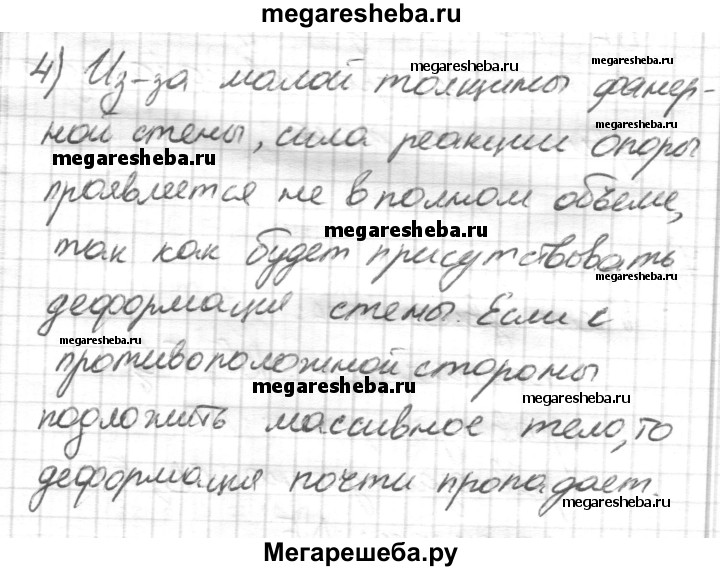 megaresheba.ru
4) Из-за малой толщины фанер-
megaresheba.ru
megaresheba.ru
ной стены, сила реакции опоры
megaresheba.ru
megaresheba.ru
проявляется не в полном объеме,
megaresheba.ru
так как будет присутствовать
megaresheba.ru
деформация стены. Если с
megaresheba.ru
megaresheba.ru
противоположной стороны
megaresheba.ru
megaresheba.ru
подложить массивное тело, то
деформация почти пропадает.
megaresheba.ru
Мегарешеба.ру